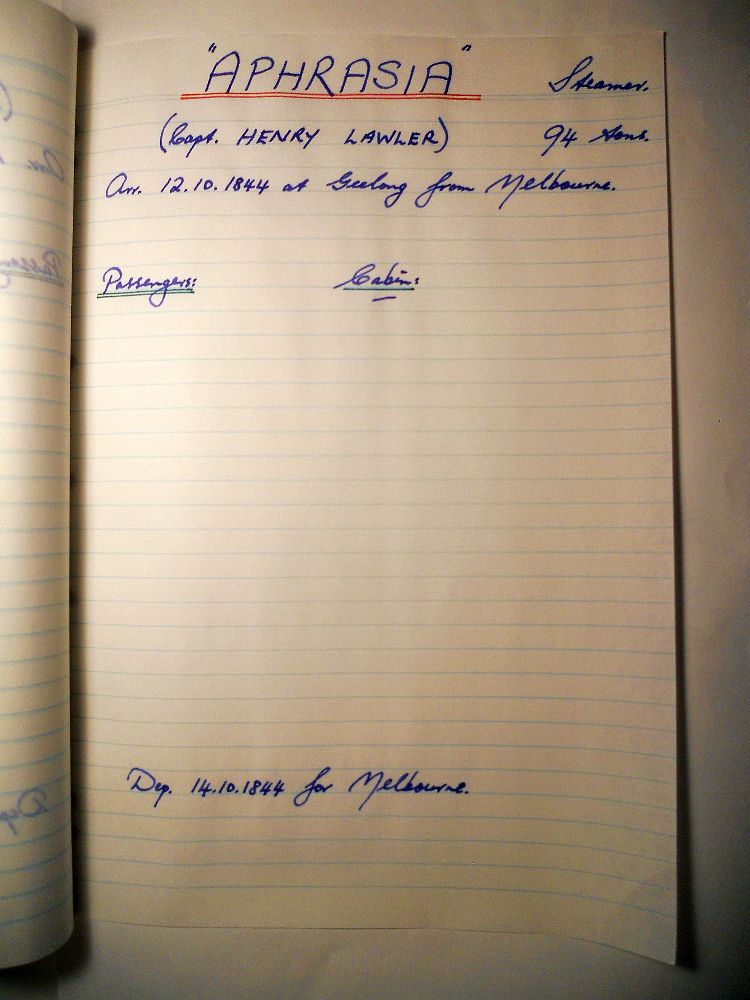 "APHRASIA" Steamer.
(Capt. HENRY LAWLER) 94 tons.
Arr. 12.10.1844 at Geelong from Melbourne.
Passengers: Cabin:
Dep. 14.10.1844 for Melbourne.